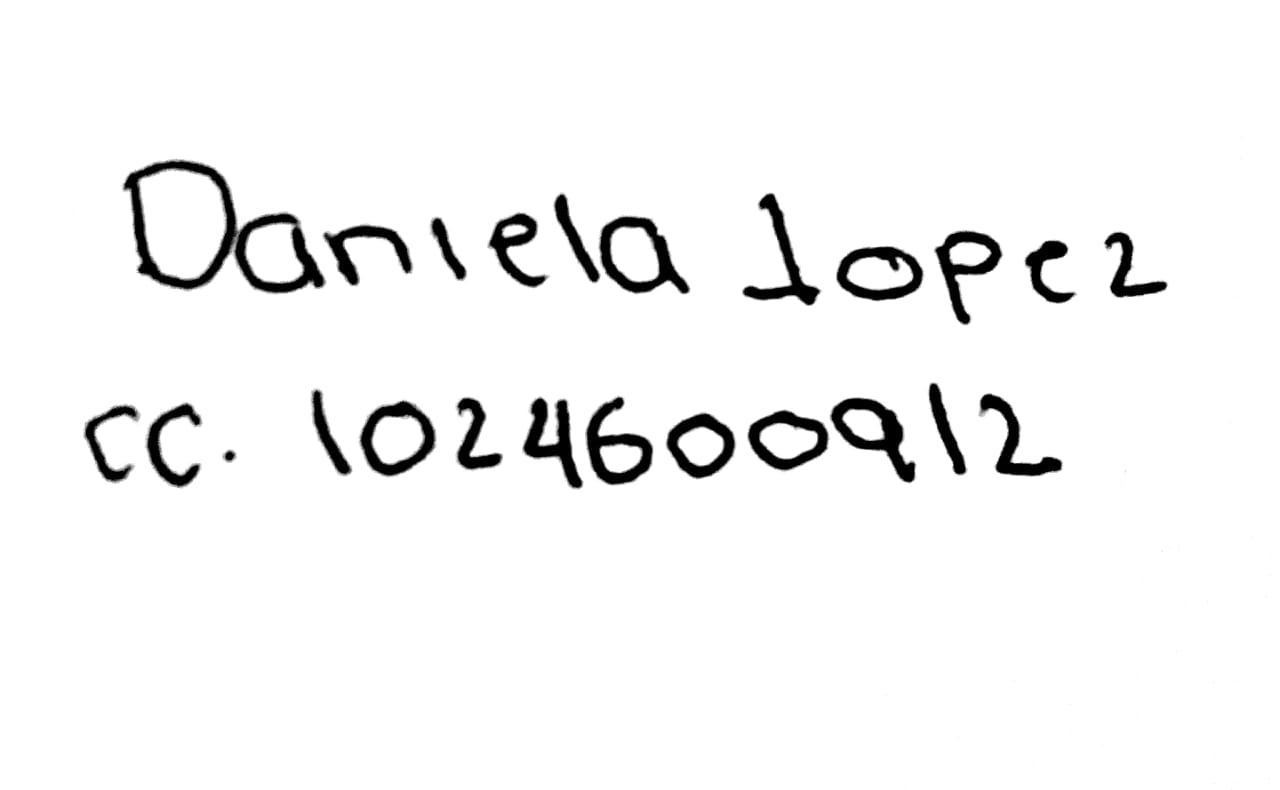 Daniela lopez
cc. 1024600912